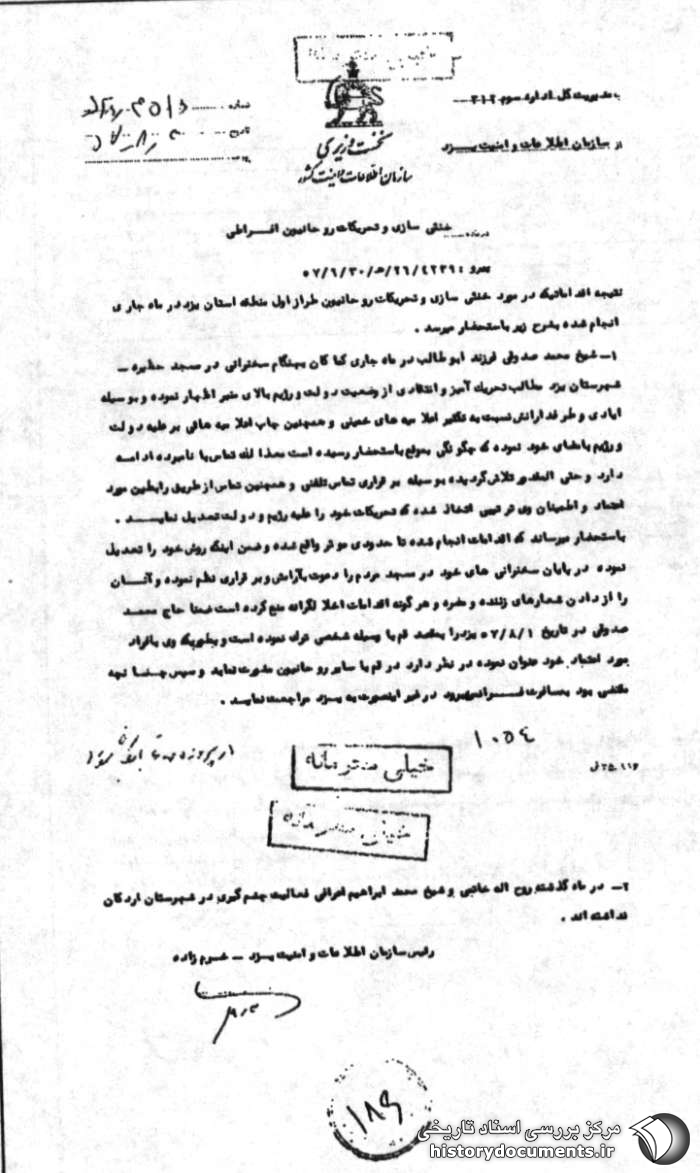 به مدیریت کل اداره سوم ۳۱۲
شماره
تاریخ
نخست وزیری
از سازمان اطلاعات و امنیت یزد
سازمان اطلاعات و امنیت کشور
درباره خنثی سازی و تحریکات روحانیون افراطی
نتیجه اقداماتیکه در مورد خنثی سازی و تحریکات روحانیون طراز اول منطقه استان یزد در ماه جاری
انجام شده بشرح زیر باستحضار میرسد .
۱- شیخ محمد صدوقی فرزند ابوطالب در ماه جاری کماکان بهنگام سخنرانی در مسجد حظیره -
شهرستان یزد مطالب تحریک آمیز و انتقادی از وضعیت دولت و رژیم بالای منبر اظهار نموده و بوسیله
ایادی و طرفدارانش نسبت به تکثیر اعلامیه های خمینی و همچنین چاپ اعلامیه هائی بر علیه دولت
و رژیم بامضای خود نموده که چگونگی بموقع باستحضار رسیده است معذالک تماس با نامبرده ادامه
دارد و حتی المقدور تلاش گردیده بوسیله برقراری تماس تلفنی و همچنین تماس از طریق رابطین مورد
اعتماد و اطمینان وی ترتیبی اتخاذ شده که تحریکات خود را علیه رژیم و دولت تعدیل نماید .
باستحضار میرساند که اقدامات انجام شده تا حدودی موثر واقع شده و ضمن اینکه روش خود را تعدیل
نموده در پایان سخنرانی های خود در مسجد مردم را دعوت بآرامش و برقراری نظم نموده و آنان
را از دادن شعارهای زننده و مضره و هر گونه اقدامات اخلالگرانه منع کرده است ضمنا حاج محمد
صدوقی در تاریخ ۵۷/۸/۱ یزد را بمقصد قم با وسیله شخصی ترک نموده است و بطوریکه وی بافراد
مورد اعتماد خود عنوان نموده در نظر دارد در قم با سایر روحانیون مشورت نماید و سپس چنانچه
مقتضی بود بمسافرت فرانسه برود در غیر اینصورت به یزد مراجعت نماید .
۱۰۵٤
خیلی محرمانه
خیلی محرمانه
۲- در ماه گذشته روح اله خاتمی و شیخ محمد ابراهیم اعرافی فعالیت چشم گیری در شهرستان اردکان
نداشته اند .
رئیس سازمان اطلاعات و امنیت یزد - خرم زاده
۱۸۹
مرکز بررسی اسناد تاریخی
historydocuments.ir